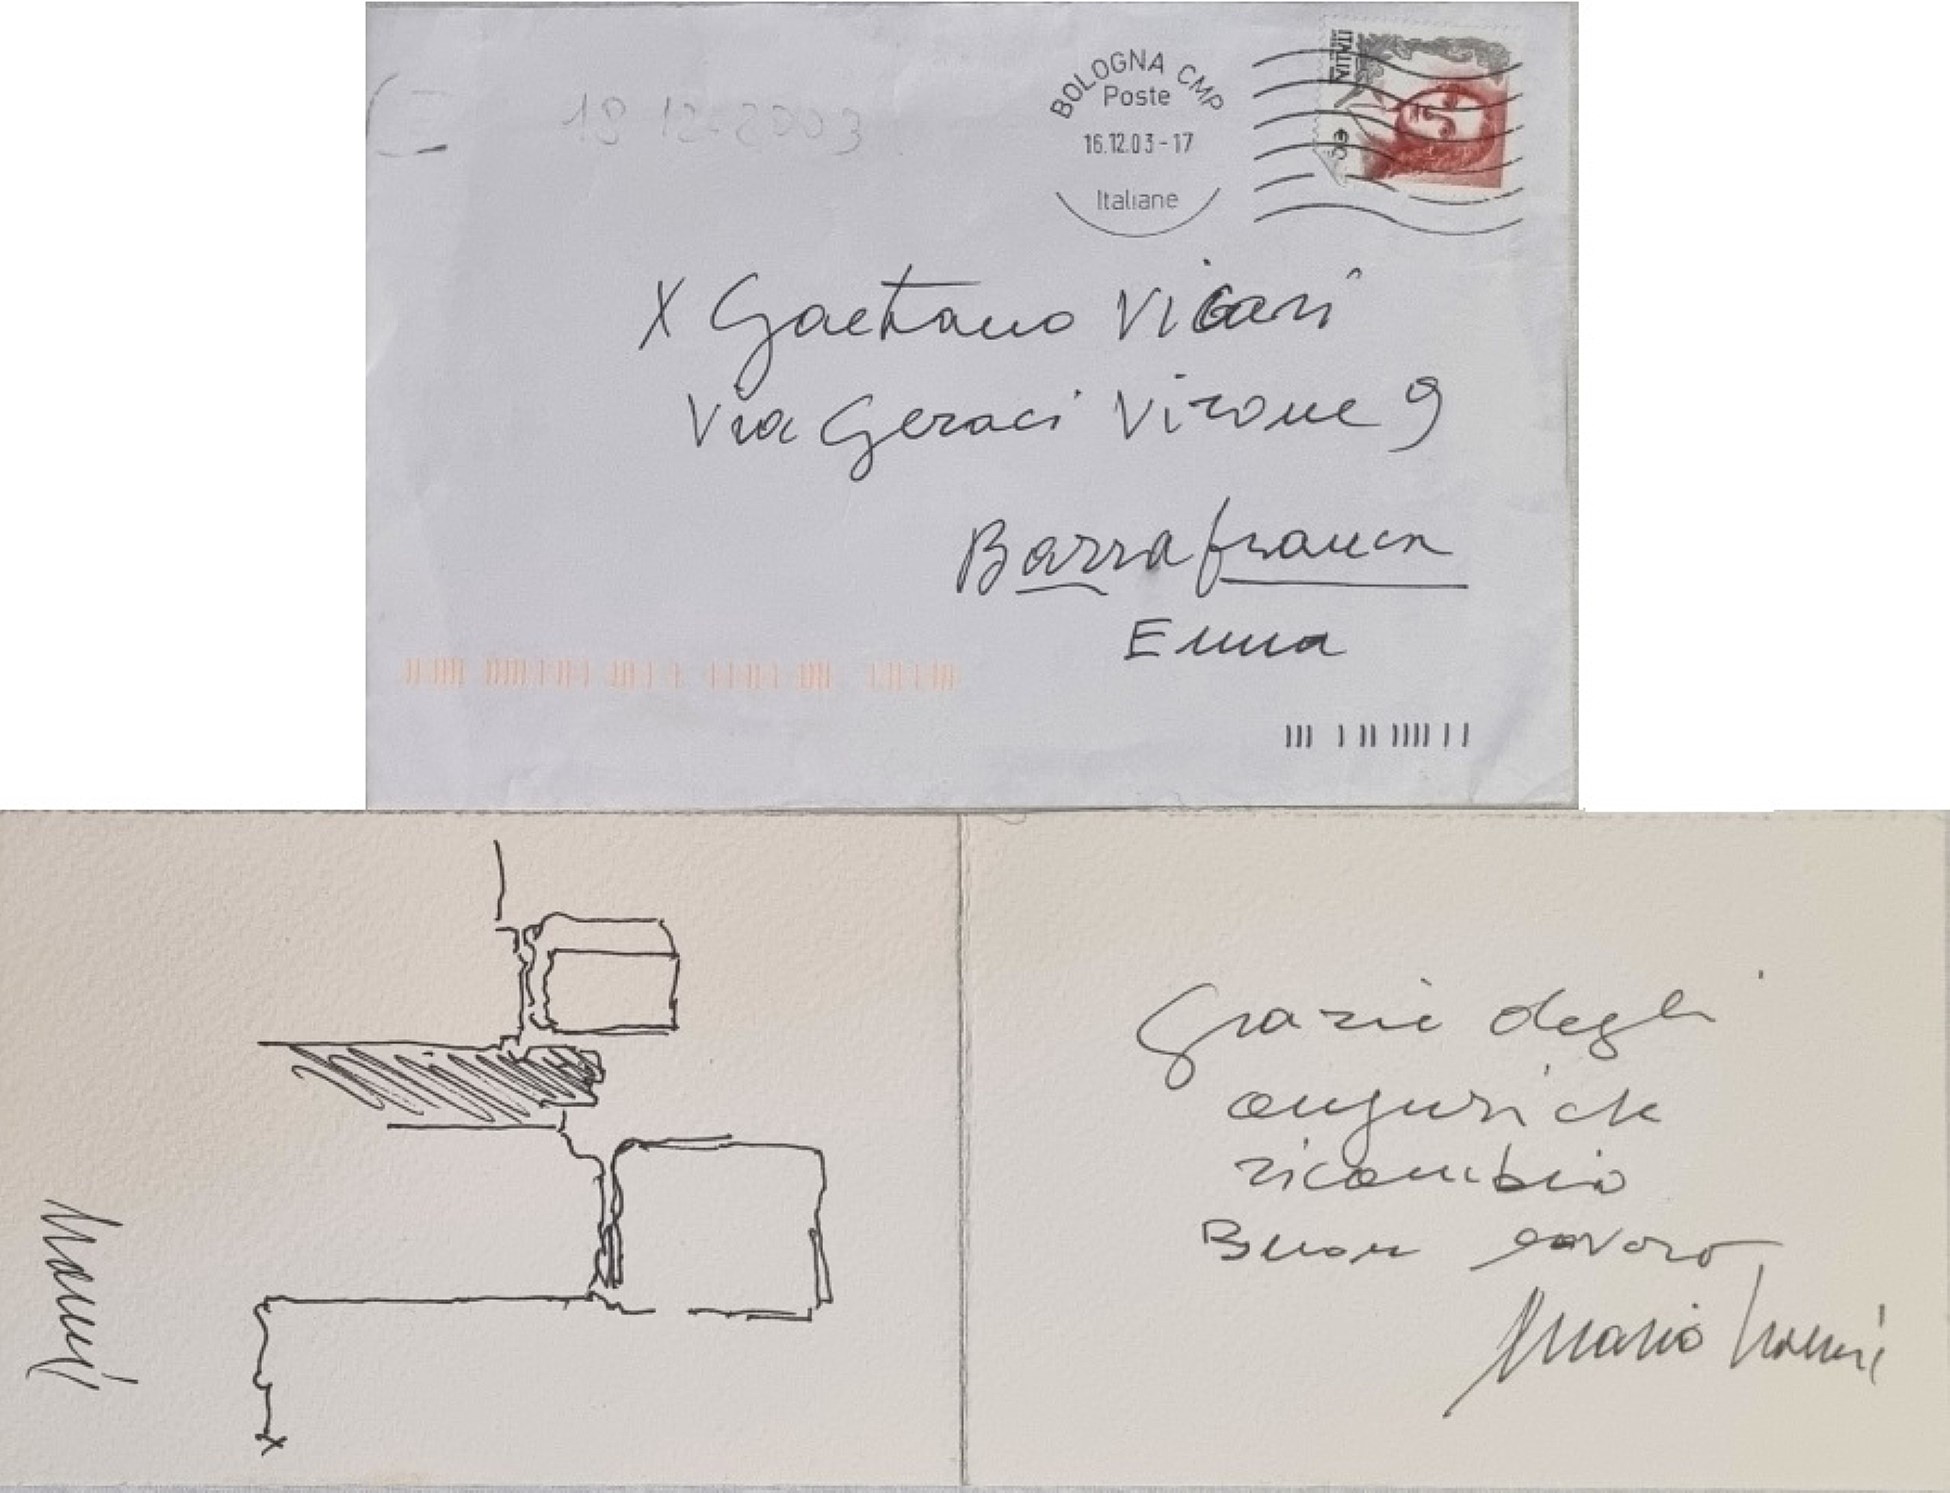 19 12-2003
BOLOGNA CMP
Poste
16.12.03-17
Italiane
ITALIA
X Gaetano Vicari
Via Geraci Virone 9
Barrafranca
Enna
Nanni
Grazie degli
auguri che
ricambio
Buon lavoro
Mario Nanni